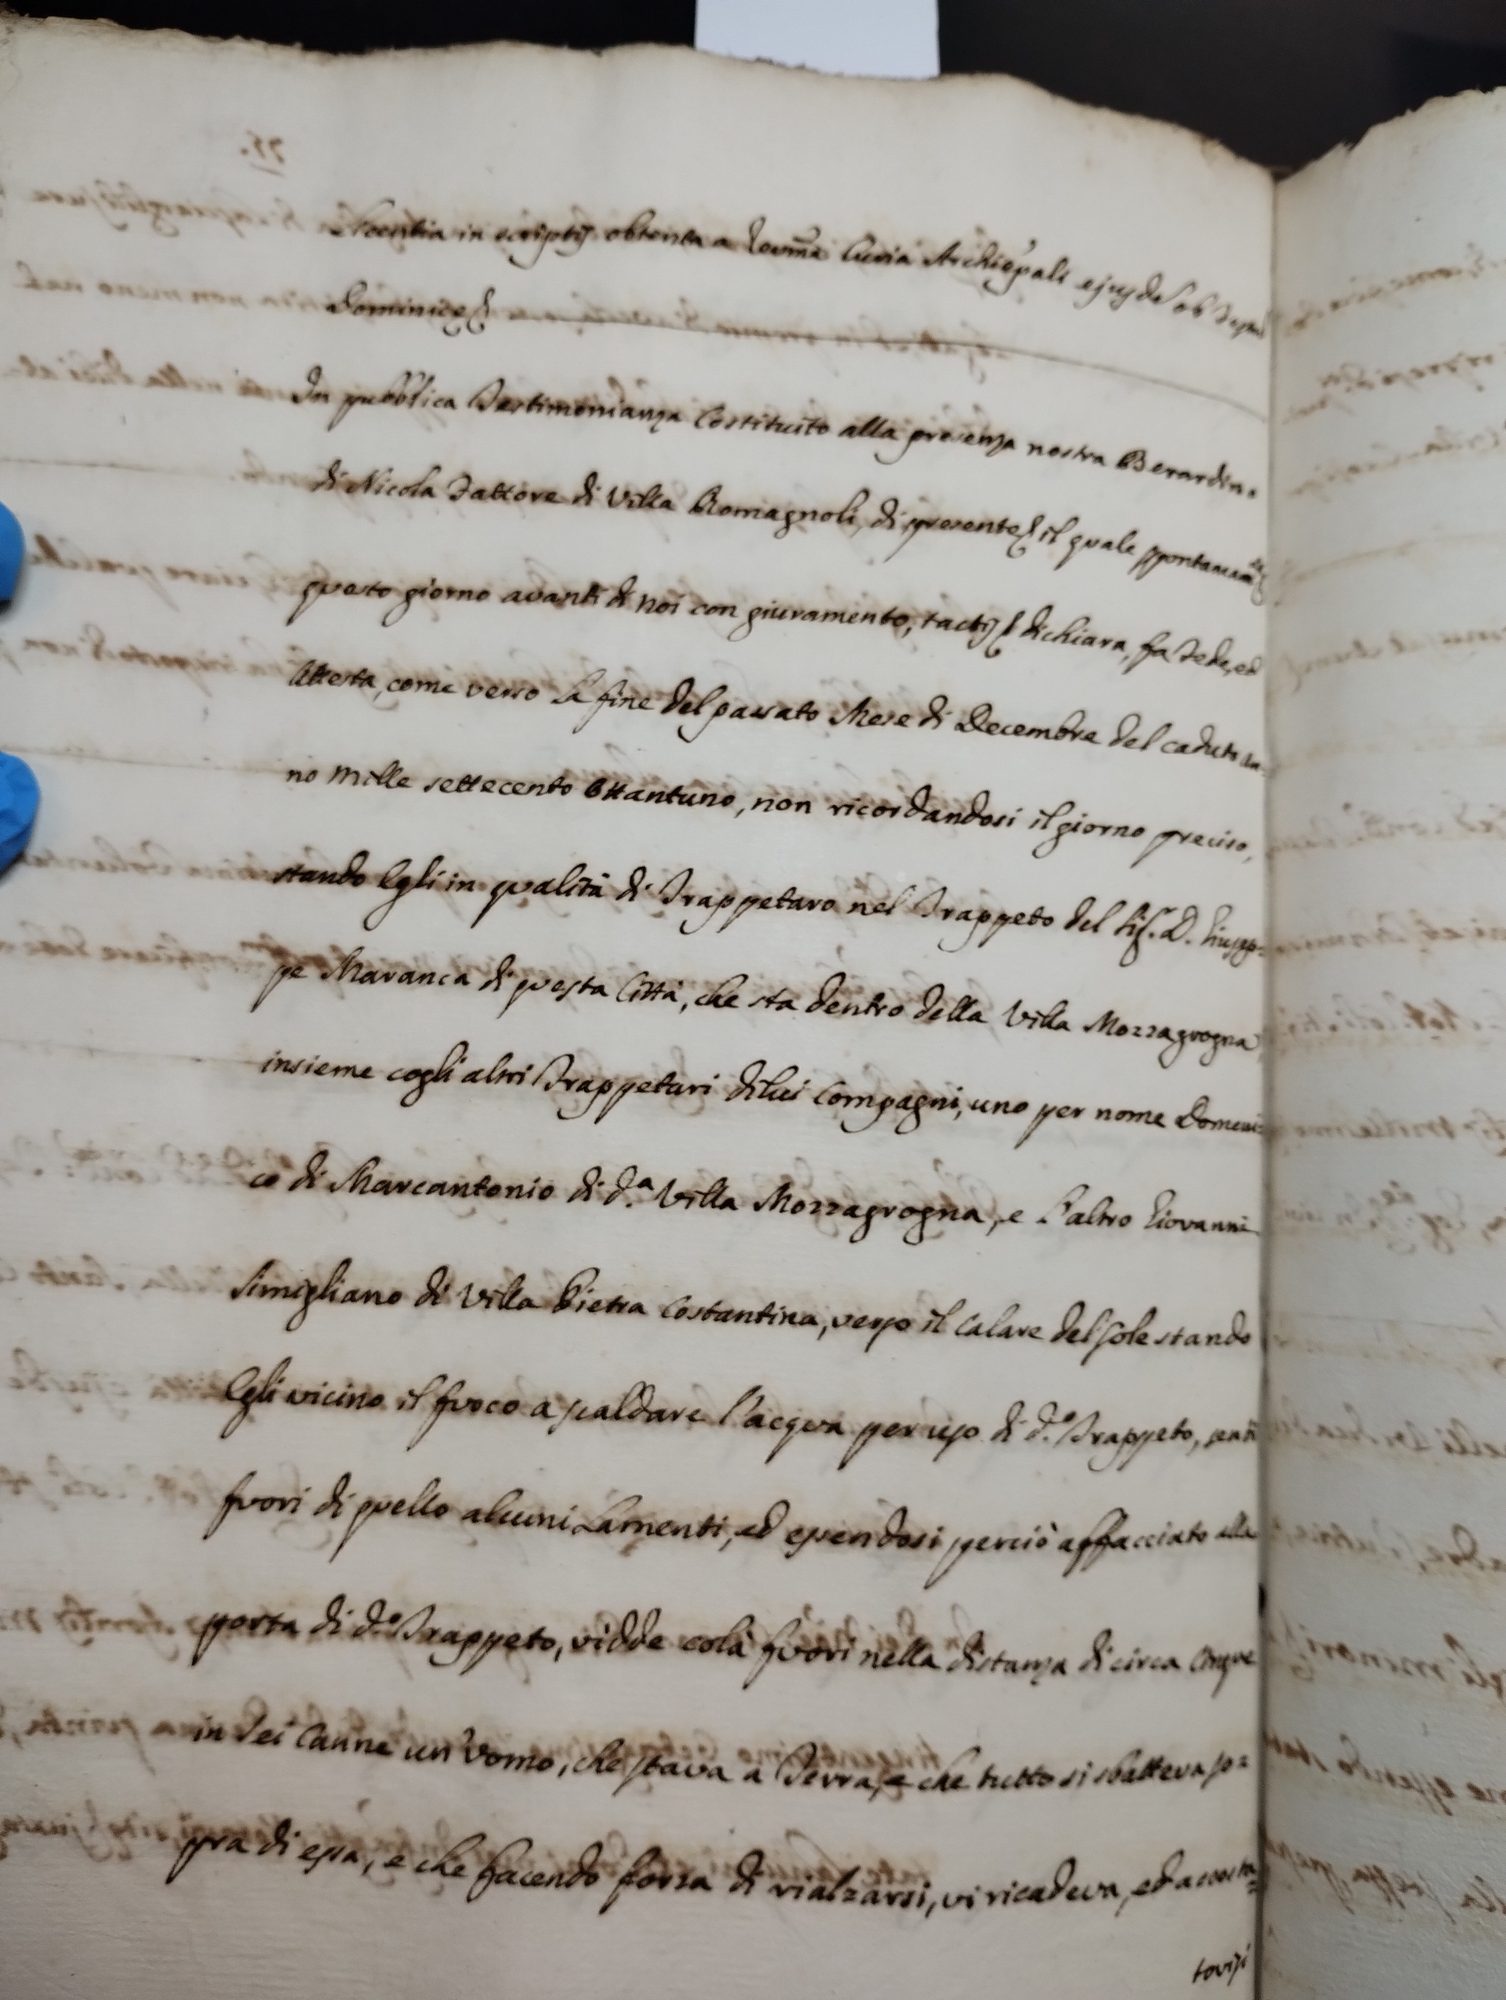 licentia in scriptis obtenta a Revma Curia Archiepali ejusd. ob
Dominice
In pubblica Testimonianza Costituito alla presenza nostra Berardino
di Nicola Fattore di Villa Romagnoli, di presente il quale spontaneam.te
questo giorno avanti di noi con giuramento, tactis dichiara, fa Fede, ed
Attesta, come verso la fine del passato Mese di Decembre del caduto An-
no Mille settecento Ottantuno, non ricordandosi il giorno preciso,
stando Egli in qualità di Trappetaro nel Trappeto del Sig.r D. Giusep=
pe Maranca di questa Città, che sta dentro della Villa Mozzagrogna
insieme cogli altri Trappetari di lui Compagni, uno per nome Domeni=
co di Marcantonio di d.a Villa Mozzagrogna, e l'altro Giovanni
Simigliano di Villa Pietra Costantina, verso il Calare del Sole stando
Egli vicino il fuoco a scaldare l'acqua per uso di d.o Trappeto, sentì
fuori di quello alcuni Lamenti, ed essendosi perciò affacciato alla
porta di d.o Trappeto, vidde colà fuori nella distanza di circa Cinque
in Sei Canne un'Uomo, che stava a Terra, e che tutto si sbatteva so=
pra di essa, e che facendo forza di rialzarsi, vi ricadeva, ed accosta=
tovisi